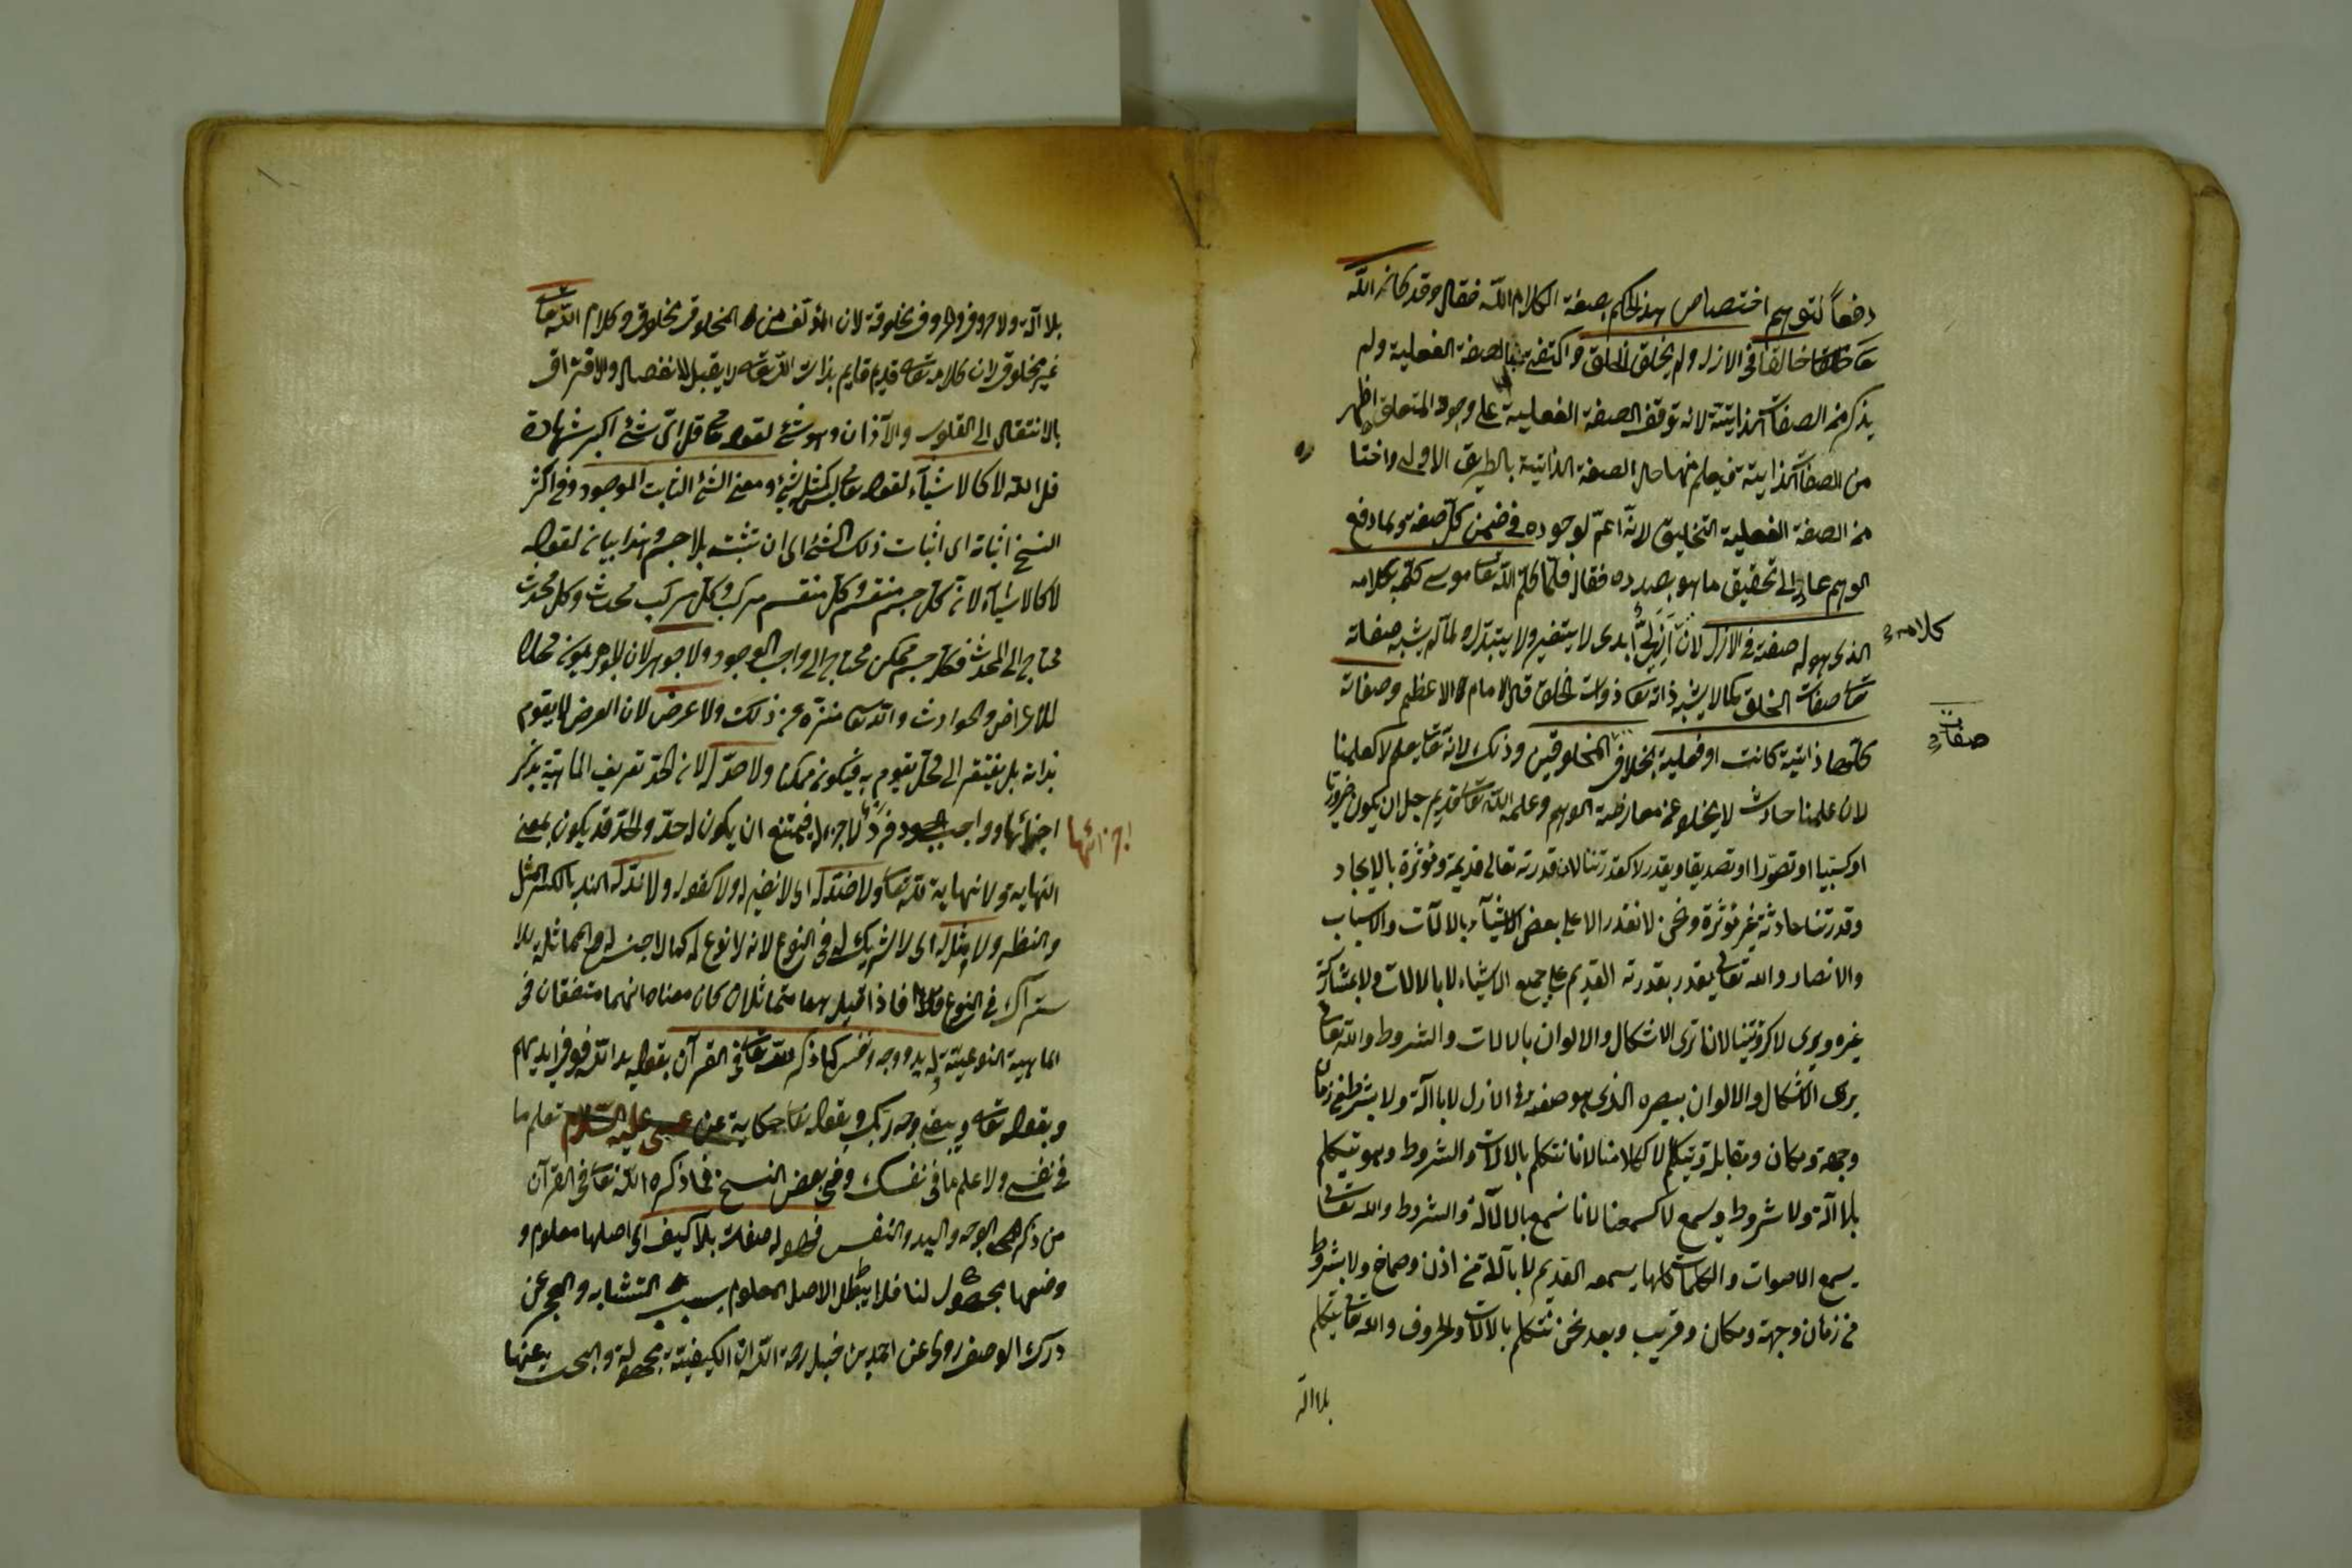 دفعاً لتوهم اختصاص هذا الحكم بصفة الكلام لله فقال وقد كان الله
تعا خالقا في الازل ولم يخلق الخلق واكتفى بالصفة الفعلية ولم
يذكر من الصفات الذاتية لانه توقف الصفة الفعلية على وجود المتعلق اظهر
من الصفات الذاتية فيعلم منها حال الصفة الذاتية بالطريق الاولى واختا
ره
من الصفة الفعلية التخليق لانه اعم لوجوده في ضمن كل صفة ولما دفع
الوهم عاد الى تحقيق ما هو بصدده فقال فلما كلم الله تعا موسى كلمه بكلامه
الذي هو له صفة في الازل لان كلامه ازلي ابدى لا يتغير ولا يتبدل ولما لم يشبه صفاته
تعا صفات الخلق كما لا يشبه ذاته تعا ذوات الخلق قال الامام الاعظم وصفاته
صفات
كلها ذاتية كانت او فعلية بخلاف المخلوقين وذلك لانه تعا يعلم لا كعلمنا
لان علمنا حادث لا يخلو عن معارضة الوهم وعلم الله تعا قديم جل ان يكون ضروريا
او كسبيا او تصورا او تصديقا ويقدر لا كقدرتنا لان قدرته تعالى قديمة ومؤثرة بالايجاد
وقدرتنا حادثة غير مؤثرة ونحن لا نقدر الا على بعض الاشيآء بالالآت والاسباب
والانصار والله تعالى يقدر بقدرته القديم على جميع الاشياء لا بالالات ولا بمشاركة
غيره ويرى لا كرؤيتنا لانا نرى الاشكال والالوان بالالات والشروط والله تعالى
يرى الاشكال والالوان ببصره الذي هو صفة في الازل لا بالة ولا بشرط من زمان
وجهة ومكان ومقابلة ويتكلم لا ككلامنا لانا نتكلم بالالات والشروط وهو يتكلم
بلا الة ولا شروط ويسمع لا كسمعنا لانا نسمع بالالآلة والشروط والله تعالى
يسمع الاصوات والكلمات كلها بسمعه القديم لا بآلة من اذن وصماخ ولا بشروط
من زمان وجهة ومكان وقريب وبعد نحن نتكلم بالالات والحروف والله تعالى يتكلم
بلا الة
بلا آلة ولا حروف والحروف مخلوقة لان المؤلف من المخلوق مخلوق وكلام الله تعا
غير مخلوق لان كلامه تعا قديم قايم بذات الله تعا لا يقبل الانفصال والافتراق
بالانتقال الى القلوب والآذان وهو شئ لقوله تعا قل اى شئ اكبر شهادة
قل الله لا كالاشيآء لقوله تعا ليس كمثله شئ ومعنى الشئ الثابت الموجود وفي اكثر
النسخ اثباته اى اثبات ذلك الشئ اى ان تثبته بلا جسم وهذا بيان لقوله
لا كالاشيآء لان كل جسم منقسم وكل منقسم مركب وكل مركب محدث وكل محدث
محتاج الى المحدث فكل جسم ممكن محتاج الى واجب الوجود ولا جوهر لان الجوهر يكون محلا
للاعراض والحوادث والله تعا منزه عن ذلك ولا عرض لان العرض لا يقوم
بذاته بل يفتقر الى محل يقوم به فيكون ممكنا ولا حد له لان الحد تعريف الماهية بذكر
اجزائها
اجزائها وواجب فرد لا جزء له فيمتنع ان يكون له حد والحد قد يكون بمعنى
النهاية ولا نهاية لله تعا ولا ضد له اى لا نضير له ولا كفو له ولا ند له الند بالكسر المثل
والنظير ولا مثل له اى لا شريك له في النوع لانه لا نوع له كما لا جنس له والمماثلة بلا
ستراك في النوع فاذا قيل هما متماثلان كان معناه انهما متفقان في
الماهية النوعية وله يد ووجه ونفس كما ذكر الله تعا في القرآن بقوله يد الله فوق ايديهم
وبقوله تعا ويبقى وجه ربك وبقوله تعا حكاية عن عيسى عليه السلام تعلم ما
في نفسى ولا اعلم ما في نفسك وفي بعض النسخ فما ذكره الله تعا في القرآن
من ذكر الوجه واليد والنفس فهو له صفات بلا كيف اى اصلها معلوم و
وصفها مجهول لنا فلا يبطل الاصل المعلوم بسبب التشابه والعجز عن
درك الوصف روى عن احمد بن حنبل رحمه الله ان الكيفية مجهولة والبحث عنها